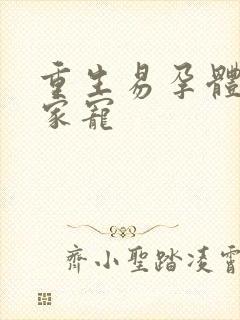 重生易孕體
家寵
齊小聖踏凌霄